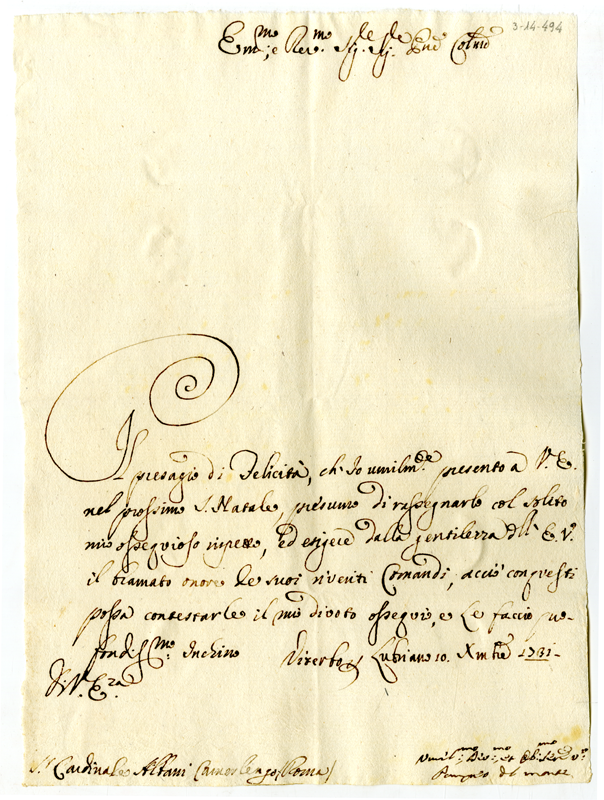 3-14-494
Em.mo e Rev.mo Sig.re Sig.re Pnē Colmo
Il presagio di Felicità, ch'Io umilm.te presento a V.E.
nel prossimo S. Natale, presumo di rassegnarlo col solito
mio ossequioso rispetto, ed esigere dalla gentilezza dell'E.V.
il bramato onore de suoi riveriti Comandi, acciò con questi
possa contestarle il mio divoto ossequio, e Le faccio pro-
fondiss.mo Inchino Viterbo Lubriano 10. Xmbre 1731
Di V. E.za
S.r Cardinale Albani Camerlengo (Roma)
Umil.mo Div.mo et Obl.mo Ser.e V.o
del monte